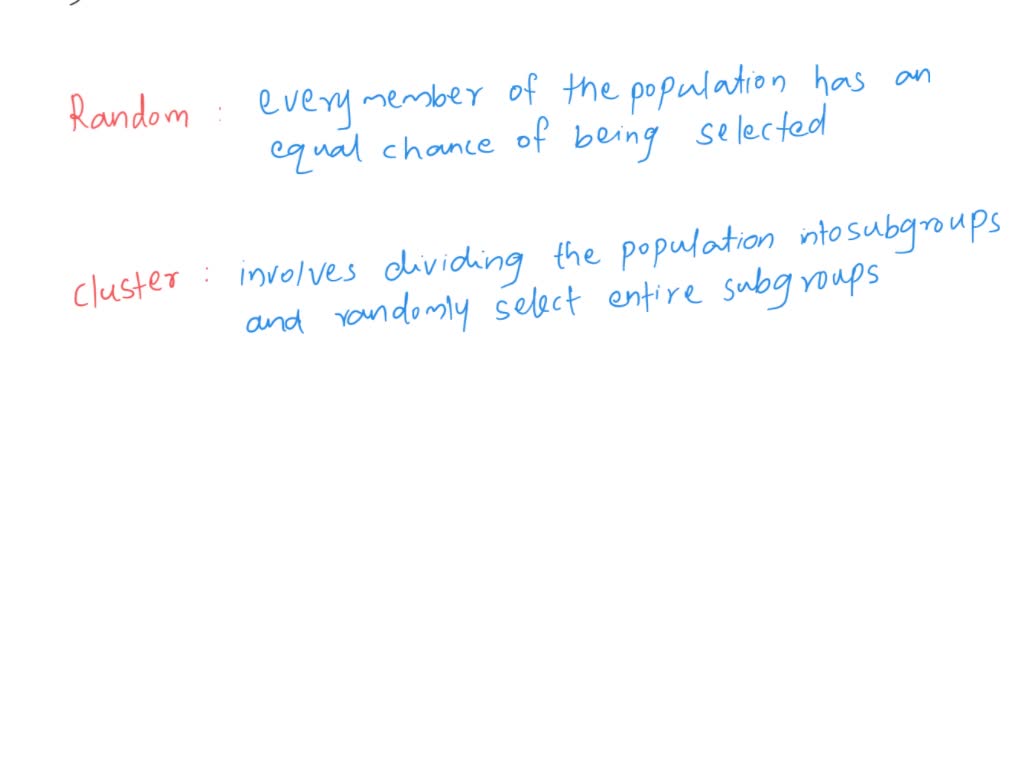 Random : every member of the population has an
equal chance of being selected
cluster : involves dividing the population into subgroups
and randomly select entire subgroups